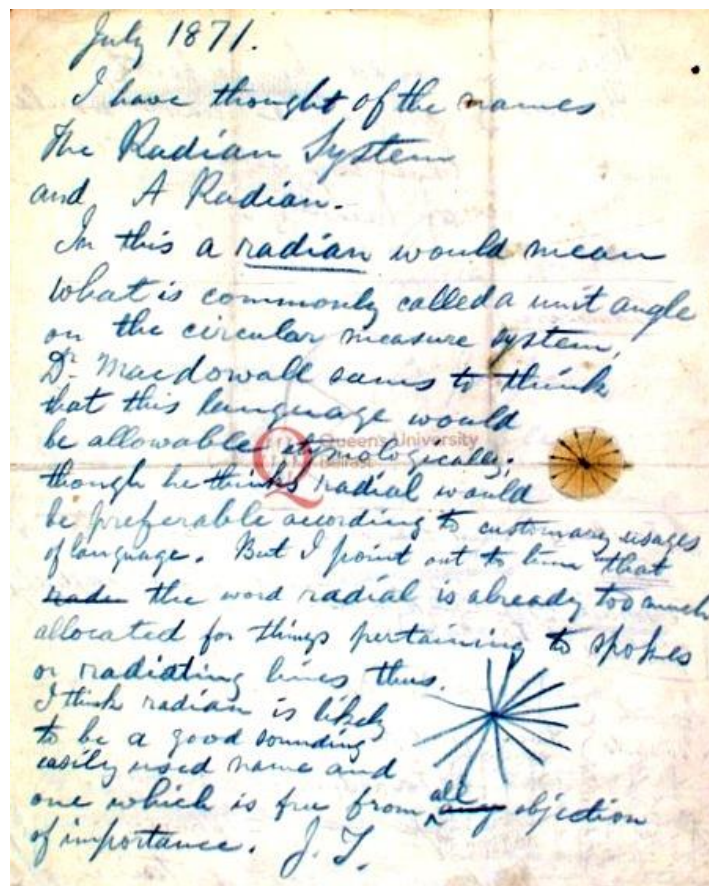 July 1871.
I have thought of the names
The Radian System
and A Radian.
In this a radian would mean
what is commonly called a unit angle
on the circular measure system,
Dr. Macdowall seems to think
that this language would
be allowable etymologically;
though he thinks radial would
be preferable according to customary usages
of language. But I point out to him that
the word radial is already too much
allocated for things pertaining to spokes
or radiating lines thus.
I think radian is likely
to be a good sounding
easily used name and
one which is free from all objection
of importance. J. T.
Queen's University
Belfast